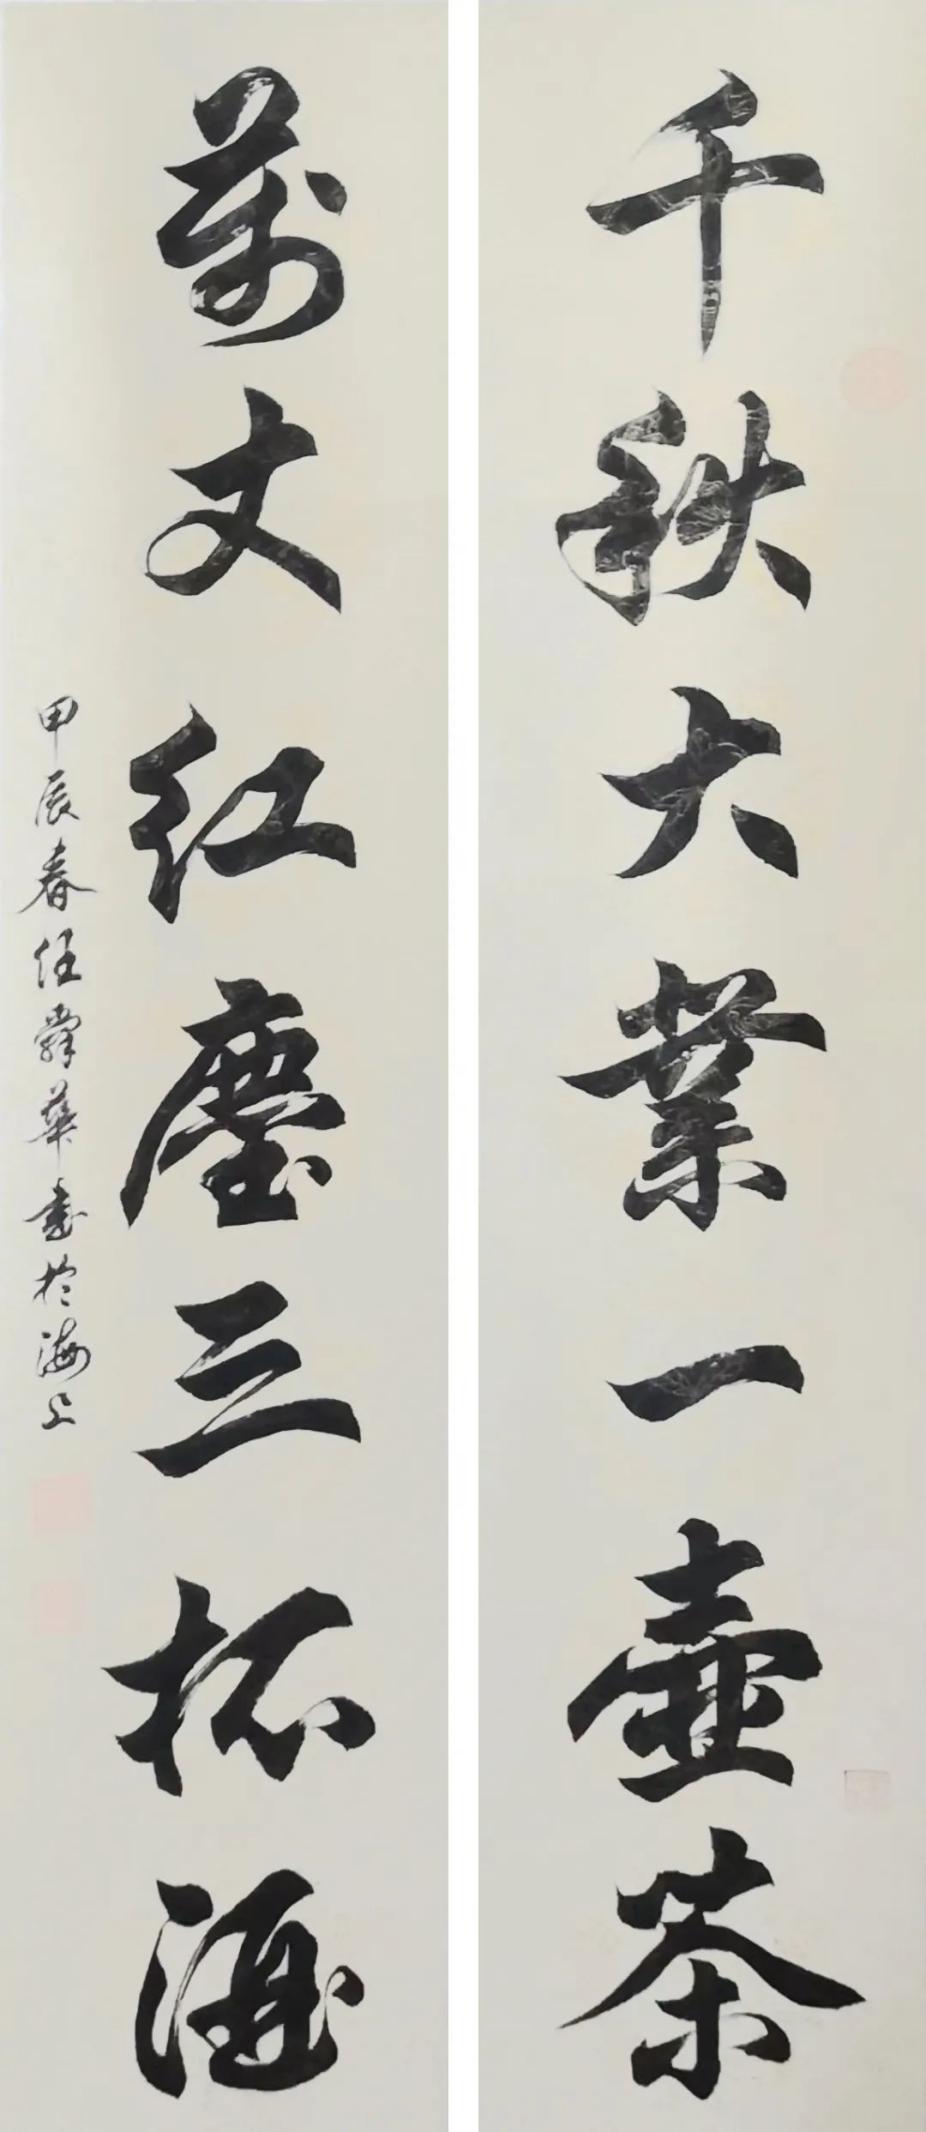 千秋大業一壺茶
萬丈紅塵三杯酒
甲辰春任舜華書於海上